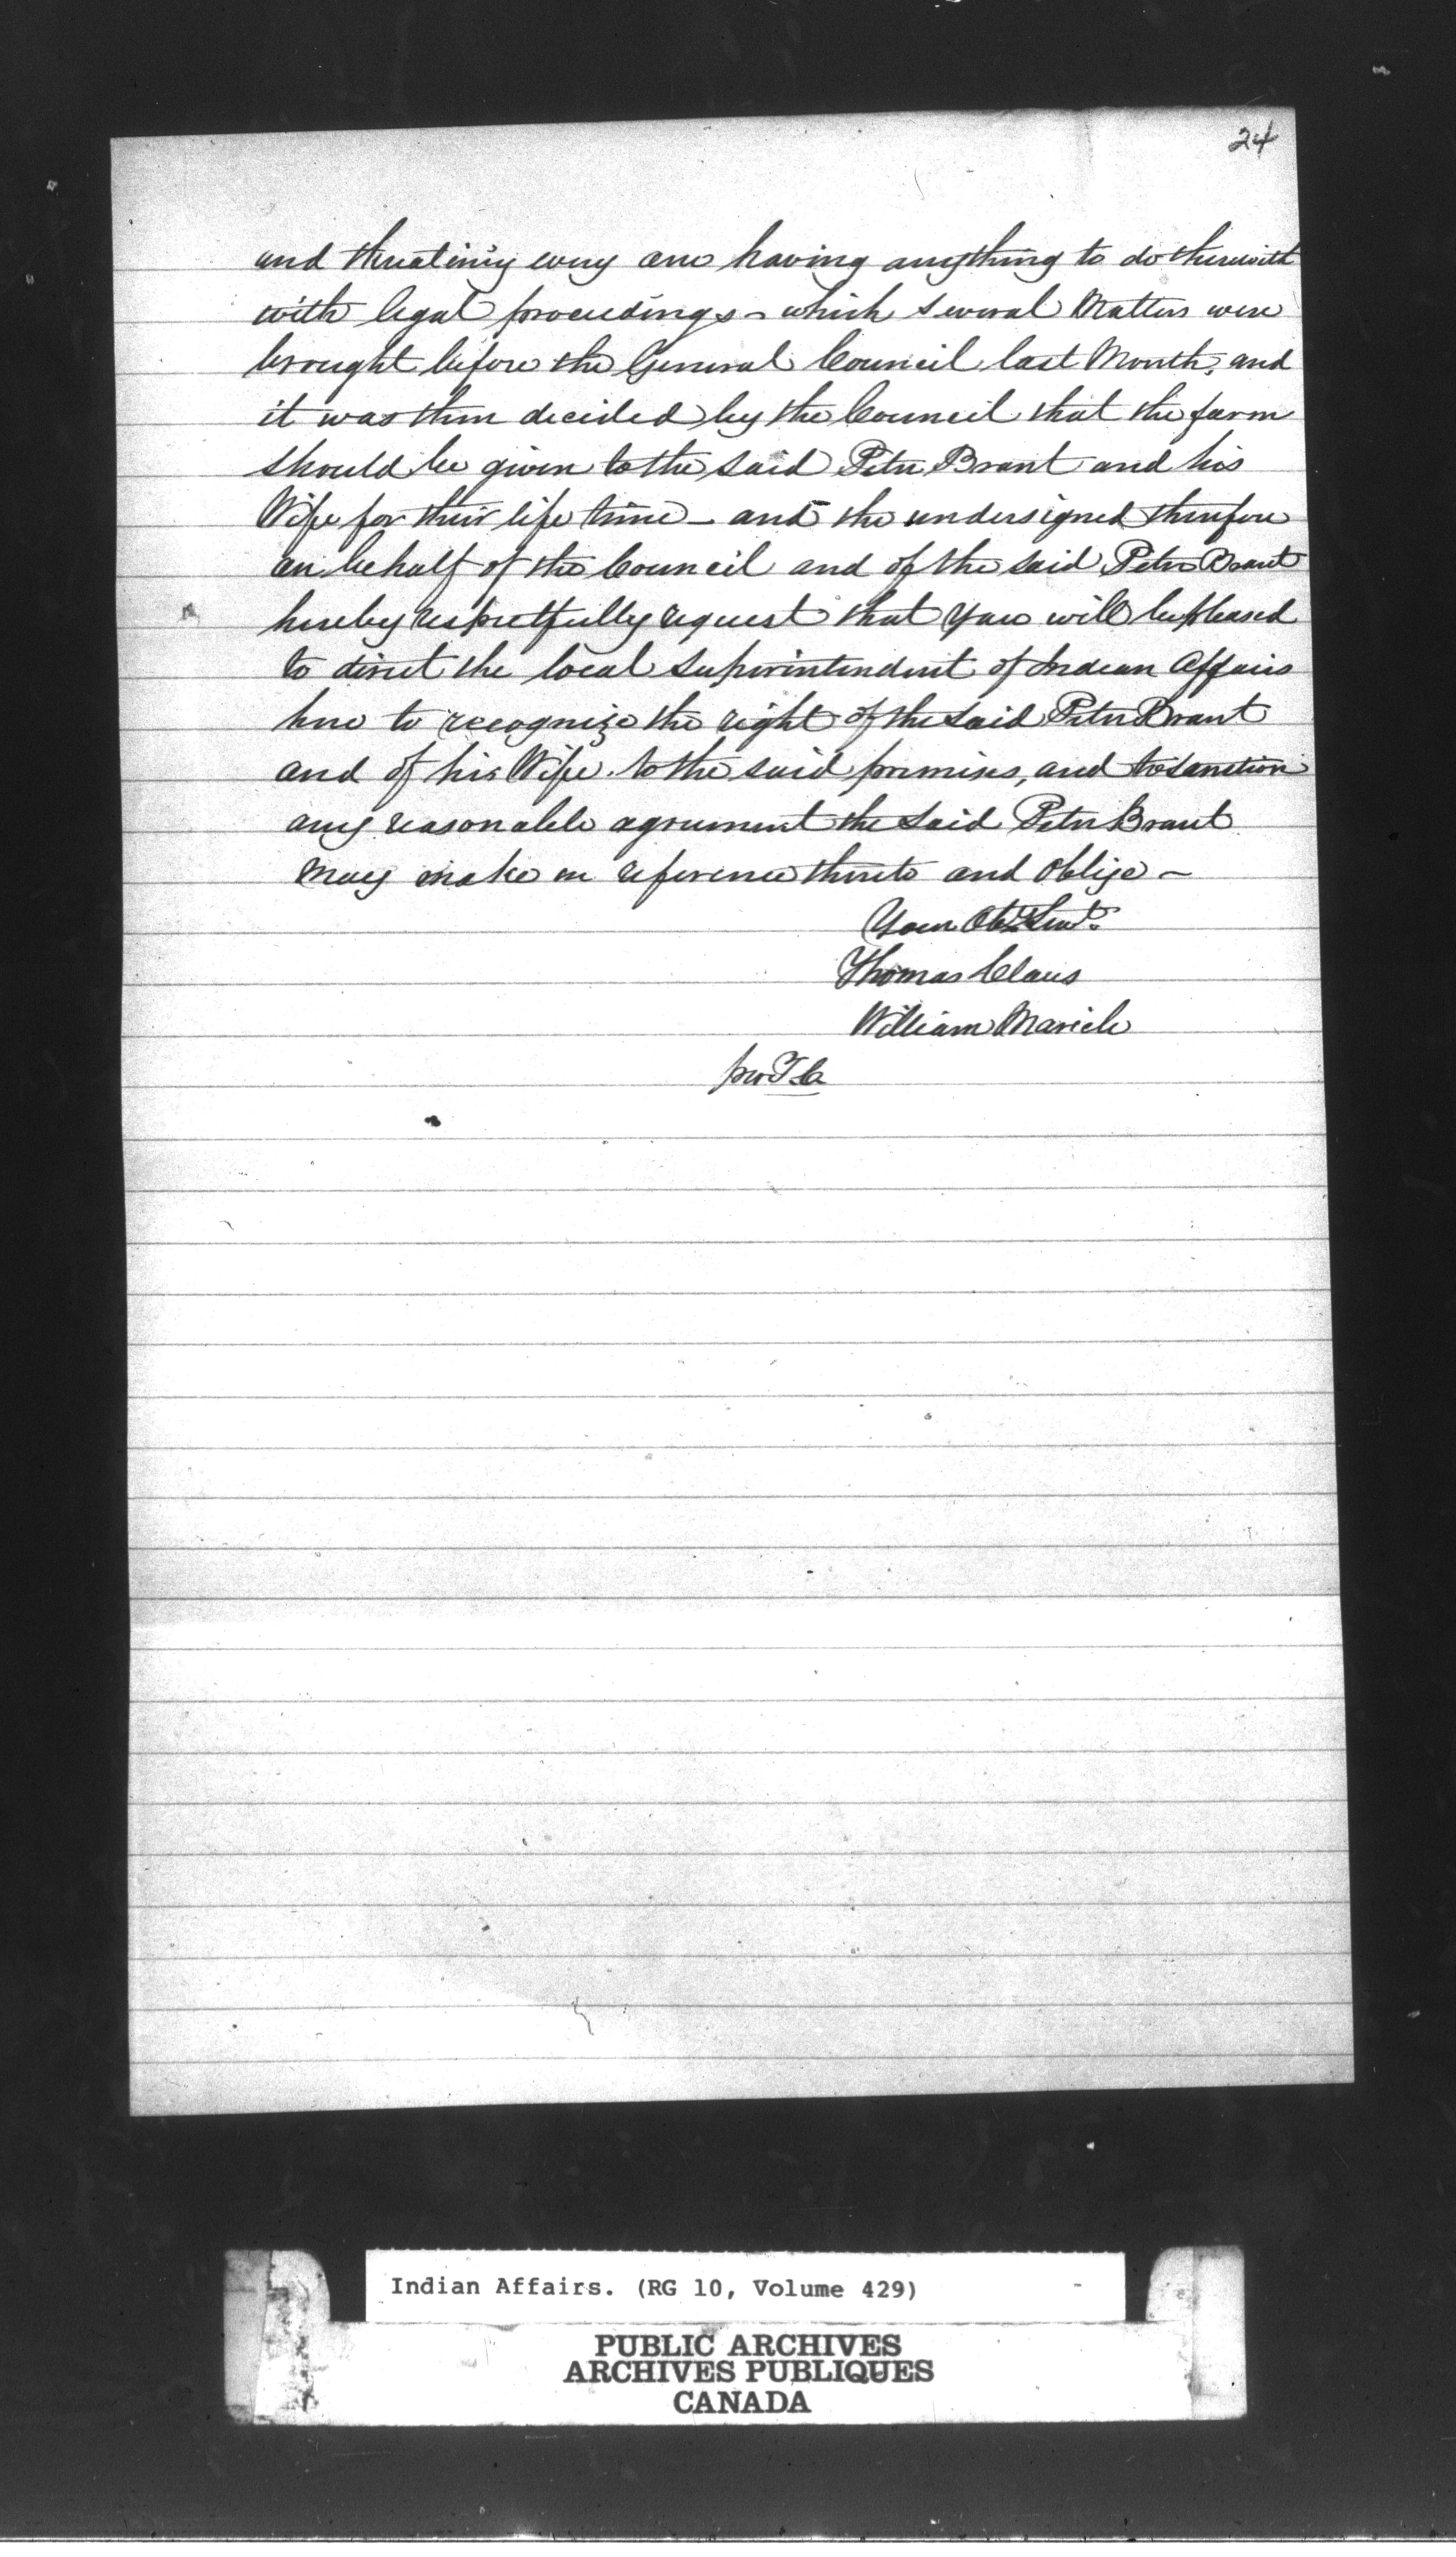 24
and threatinig every one having anything to do therewith
with legal proceedings - which several Matters were
brought before the General Council last Month, and
it was then decided by the Council that the farm
should be given to the said Peter Brant and his
Wife for their life time - and the undersigned therefore
on behalf of the Council and of the said Peter Brant
hereby respectfully request that you will be pleased
to direct the local Superintendent of Indian Affairs
here to recognize the right of the said Peter Brant
and of his Wife to the said premises, and to sanction
any reasonable agreement the said Peter Brant
may make in reference thereto and oblige -
Your Obt Servts
Thomas Claus
William Maricle
per T C
Indian Affairs. (RG 10, Volume 429)
PUBLIC ARCHIVES
ARCHIVES PUBLIQUES
CANADA